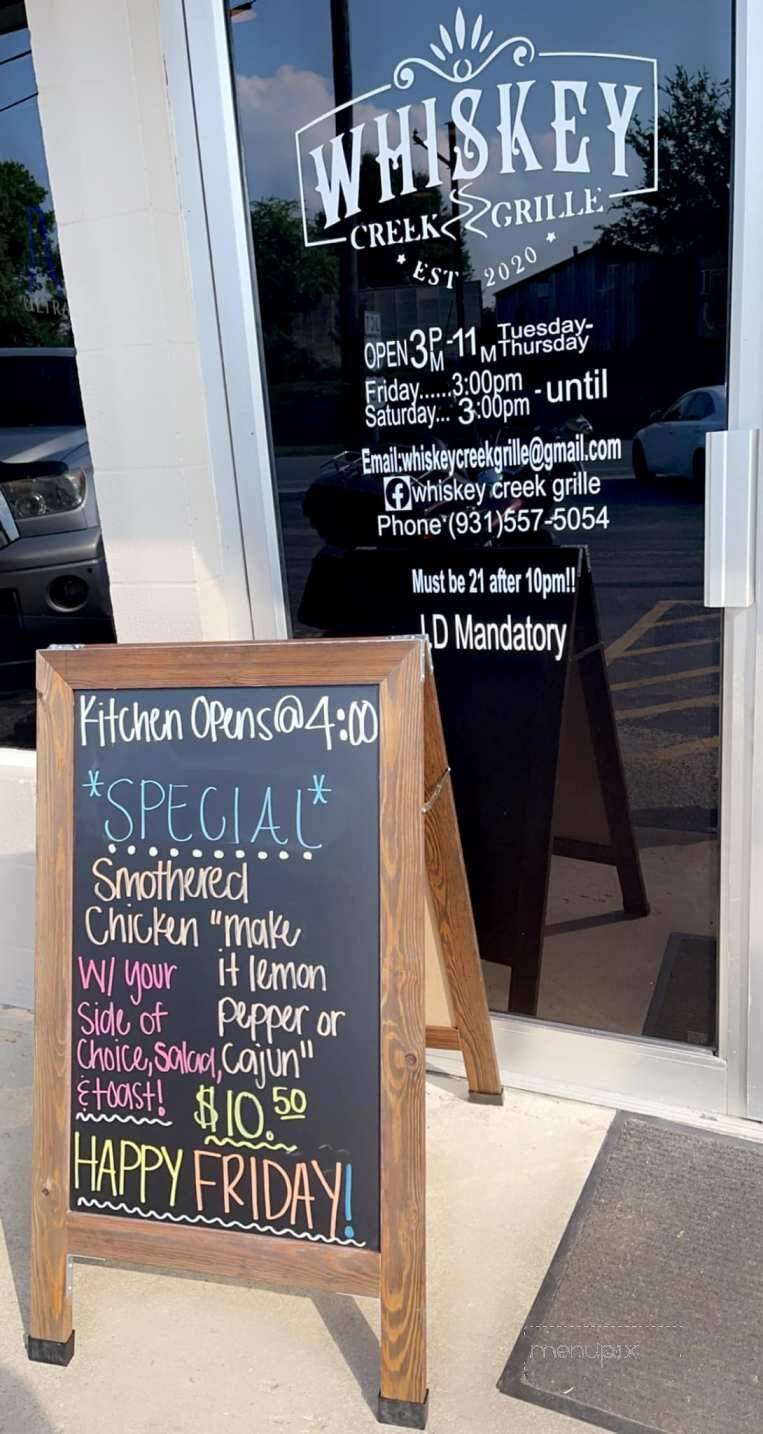 WHISKEY
CREEK GRILLE
EST 2020
OPEN 3PM-11M Tuesday-
Thursday
Friday......3:00pm -until
Saturday... 3:00pm
Email:whiskeycreekgrille@gmail.com
whiskey creek grille
Phone (931)557-5054
Must be 21 after 10pm!!
I.D Mandatory
Kitchen Opens@4:00
*SPECIAL*
Smothered
Chicken "make
W/ your it lemon
Side of Pepper or
Choice, Salad, Cajun"
& toast! $10.50
HAPPY FRIDAY!
ULTRA
menupix